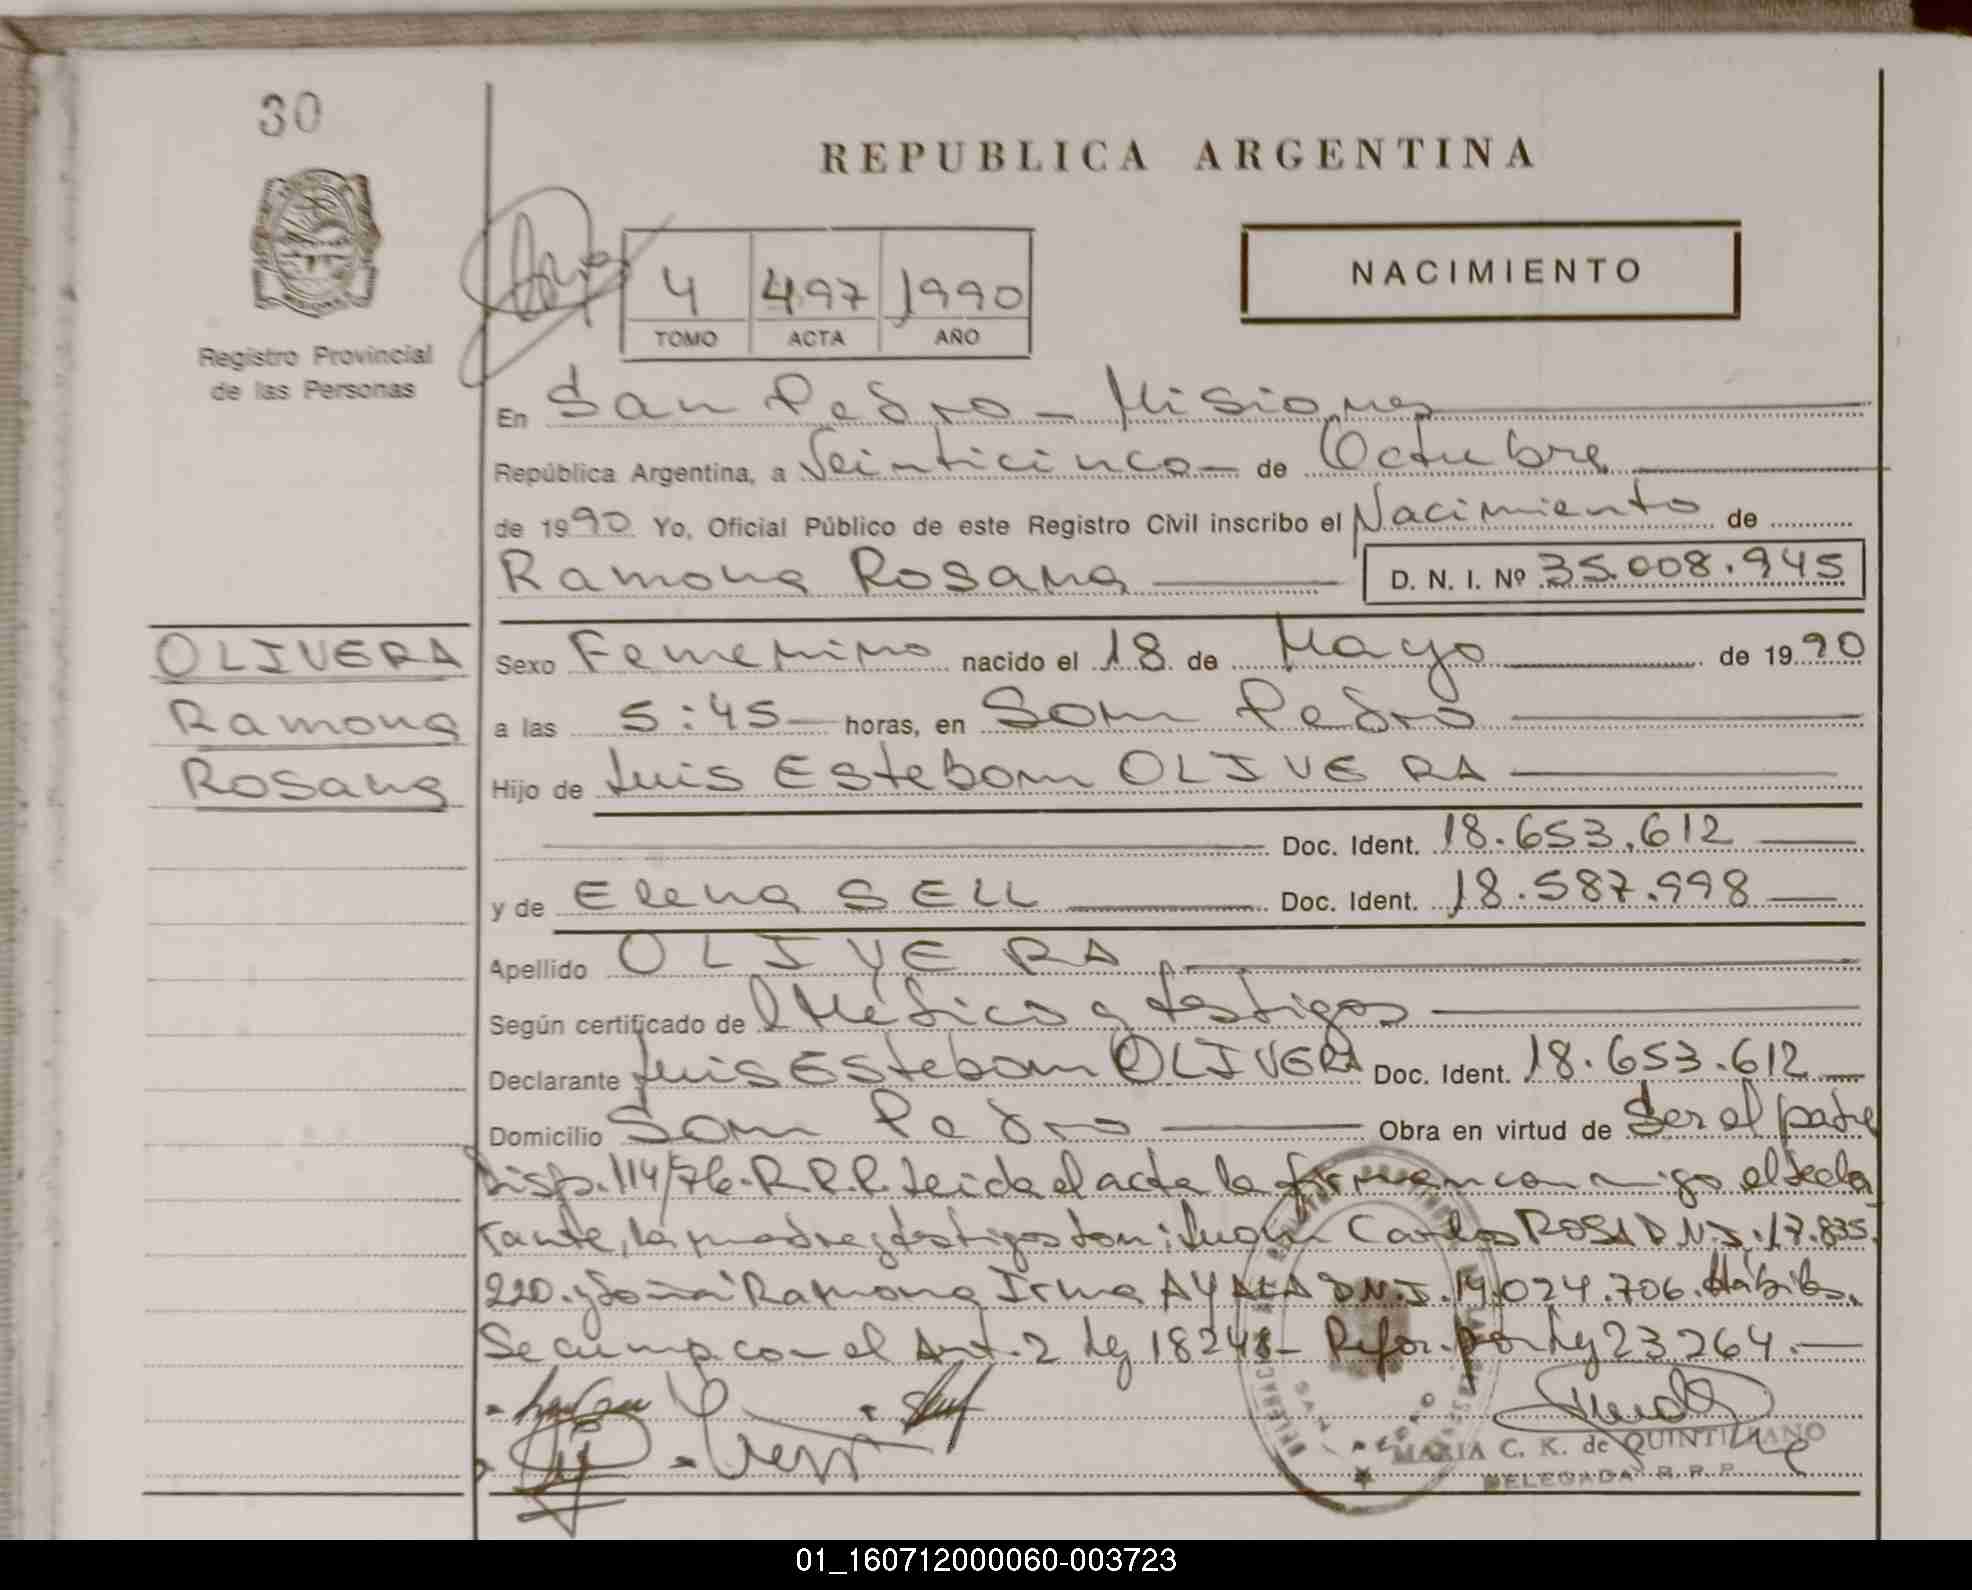 30
REPUBLICA ARGENTINA
NACIMIENTO
4 497 1990
TOMO ACTA AÑO
Registro Provincial
de las Personas
En San Pedro - Misiones
República Argentina, a Veinticinco de Octubre
de 1990 Yo, Oficial Público de este Registro Civil inscribo el Nacimiento de
Ramona Rosana D. N. I. Nº 35.008.945
OLIVERA
Ramona
Rosana
Sexo Femenino nacido el 18 de Mayo de 1990
a las 5:45 horas, en San Pedro
Hijo de Luis Esteban OLIVERA
Doc. Ident. 18.653.612
y de Elena SELL Doc. Ident. 18.587.998
Apellido OLIVERA
Según certificado de Médico y testigos
Declarante Luis Esteban OLIVERA Doc. Ident. 18.653.612
Domicilio San Pedro Obra en virtud de Ser el padre
Disp. 114/76. R.P.P. Leida el acta la firman conmigo el decla
rante, la madre y testigos Don: Juan Carlos ROSA D.N.I. 17.835.
220. y Doña Ramona Irma AYALA D.N.I. 14.024.706. Hábiles.
Se cump. con el Art. 2 Ley 18248 - Refor. por Ley 23264.
MARIA C. K. de QUINTILIANO
DELEGADA R. P. P.
01_160712000060-003723